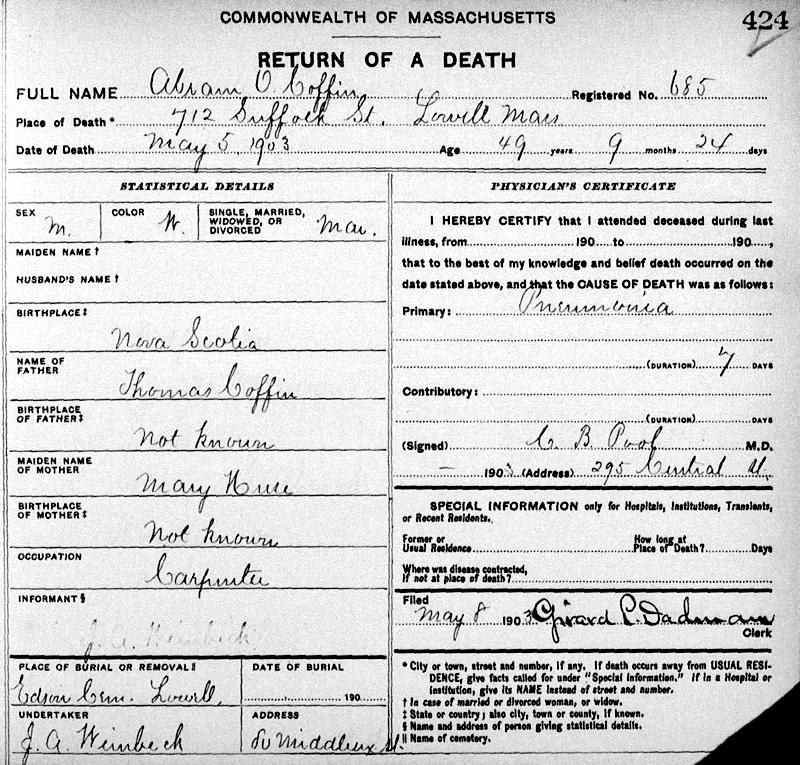 COMMONWEALTH OF MASSACHUSETTS
424
RETURN OF A DEATH
FULL NAME Abram O. Coffin Registered No. 685
Place of Death* 712 Suffolk St. Lowell Mass
Date of Death May 5 1903 Age 49 years 9 months 24 days
STATISTICAL DETAILS
SEX M. COLOR W. SINGLE, MARRIED, WIDOWED, OR DIVORCED Mar.
MAIDEN NAME†
HUSBAND'S NAME†
BIRTHPLACE‡
Nova Scotia
NAME OF FATHER
Thomas Coffin
BIRTHPLACE OF FATHER‡
Not known
MAIDEN NAME OF MOTHER
Mary
BIRTHPLACE OF MOTHER‡
Not known
OCCUPATION
Carpenter
INFORMANT§
J. A. Weinbeck
PLACE OF BURIAL OR REMOVAL‖ DATE OF BURIAL
Edson Cem. Lowell, 190
UNDERTAKER ADDRESS
J. A. Weinbeck 80 Middlesex St.
PHYSICIAN'S CERTIFICATE
I HEREBY CERTIFY that I attended deceased during last
illness, from 190 to 190 ,
that to the best of my knowledge and belief death occurred on the
date stated above, and that the CAUSE OF DEATH was as follows:
Primary: Pneumonia
(DURATION) 7 DAYS
Contributory:
(DURATION) DAYS
(Signed) C. B. Pool M.D.
— 1903 (Address) 295 Central St.
SPECIAL INFORMATION only for Hospitals, Institutions, Transients,
or Recent Residents.
Former or Usual Residence How long at Place of Death? Days
Where was disease contracted,
If not at place of death?
Filed
May 8 1903 Girard P. Dadman
Clerk
* City or town, street and number, if any. If death occurs away from USUAL RESI-
DENCE, give facts called for under "Special Information." If in a Hospital or
Institution, give its NAME instead of street and number.
† In case of married or divorced woman, or widow.
‡ State or country; also city, town or county, if known.
§ Name and address of person giving statistical details.
‖ Name of cemetery.